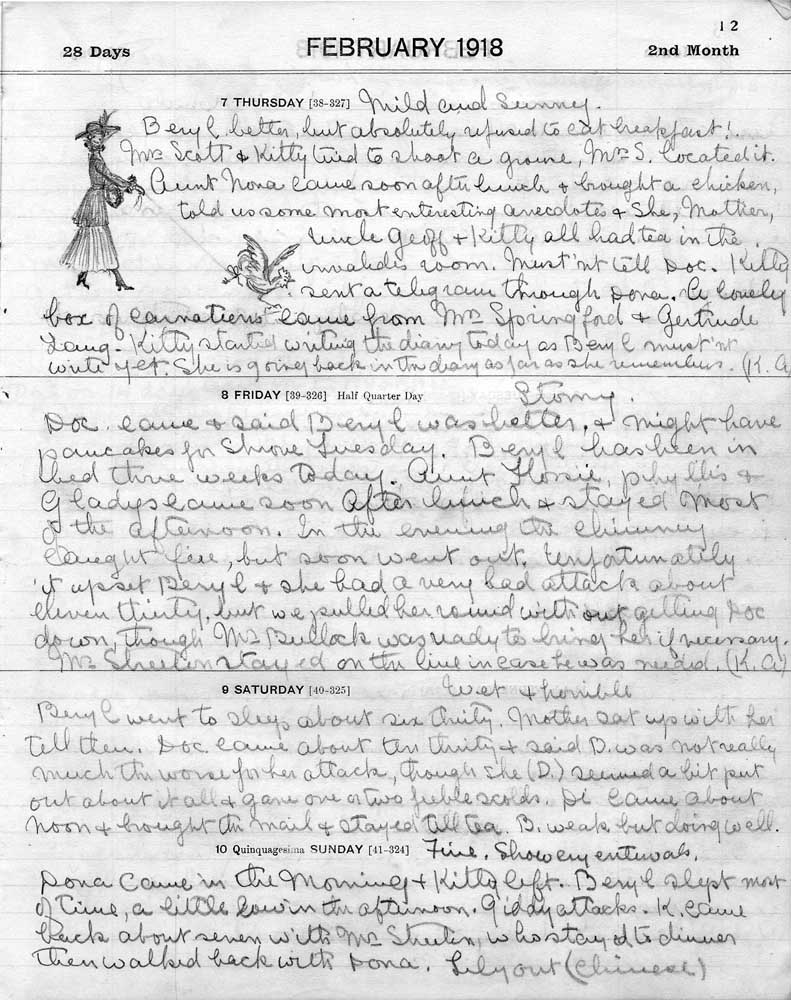 12
28 Days FEBRUARY 1918 2nd Month
7 THURSDAY [38-327] Mild and Sunney.
Beryl better, but absolutely refused to eat breakfast!
Mrs Scott & Kitty tried to shoot a grouse, Mrs S. located it.
Aunt Nona came soon after lunch & brought a chicken,
told us some most enteresting anecdotes & She, Mother,
Uncle Geoff & Kitty all had tea in the
invalides room. Must'nt tell Doc. Kitty
sent a telegram through Dona. A lovely
box of carnations came from Mrs Springford & Gertrude
Lang. Kitty started writing the diary today as Beryl must'nt
write yet. She is going back in the diary as far as she remembers. (K. A)
8 FRIDAY [39-326] Half Quarter Day Stormy.
Doc. came & said Beryl was better, & might have
pancakes for Shrove Tuesday. Beryl has been in
bed three weeks today. Aunt Florrie, Phyllis &
Gladys came soon After lunch & stayed most
of the afternoon. In the evening the chimney
caught fire, but soon went out. Unfortunatily
it upset Beryl & she had a very bad attack about
eleven thirty, but we pulled her round without getting Doc
down, though Mrs Bullock was ready to bring her if necessary.
Mr stayed on the line in case he was needed. (K. A)
9 SATURDAY [40-325] Wet & horrible
Beryl went to sleep about six thirty. Mother sat up with her
till then. Doc. came about ten thirty & said B. was not really
much the worse for her attack, though she (D.) seemed a bit put
out about it all & gave one or two feeble scolds. Di came about
noon & brought the mail & stayed till tea. B. weak but doing well.
10 Quinquagesima SUNDAY [41-324] Fine. Showery entervals.
Dona came in the Morning & Kitty left. Beryl slept most
of time, a little low in the afternoon. Giddy attacks. K. came
back about seven with Mr who stayed to dinner
then walked back with Dona. Lily out (Chinese)